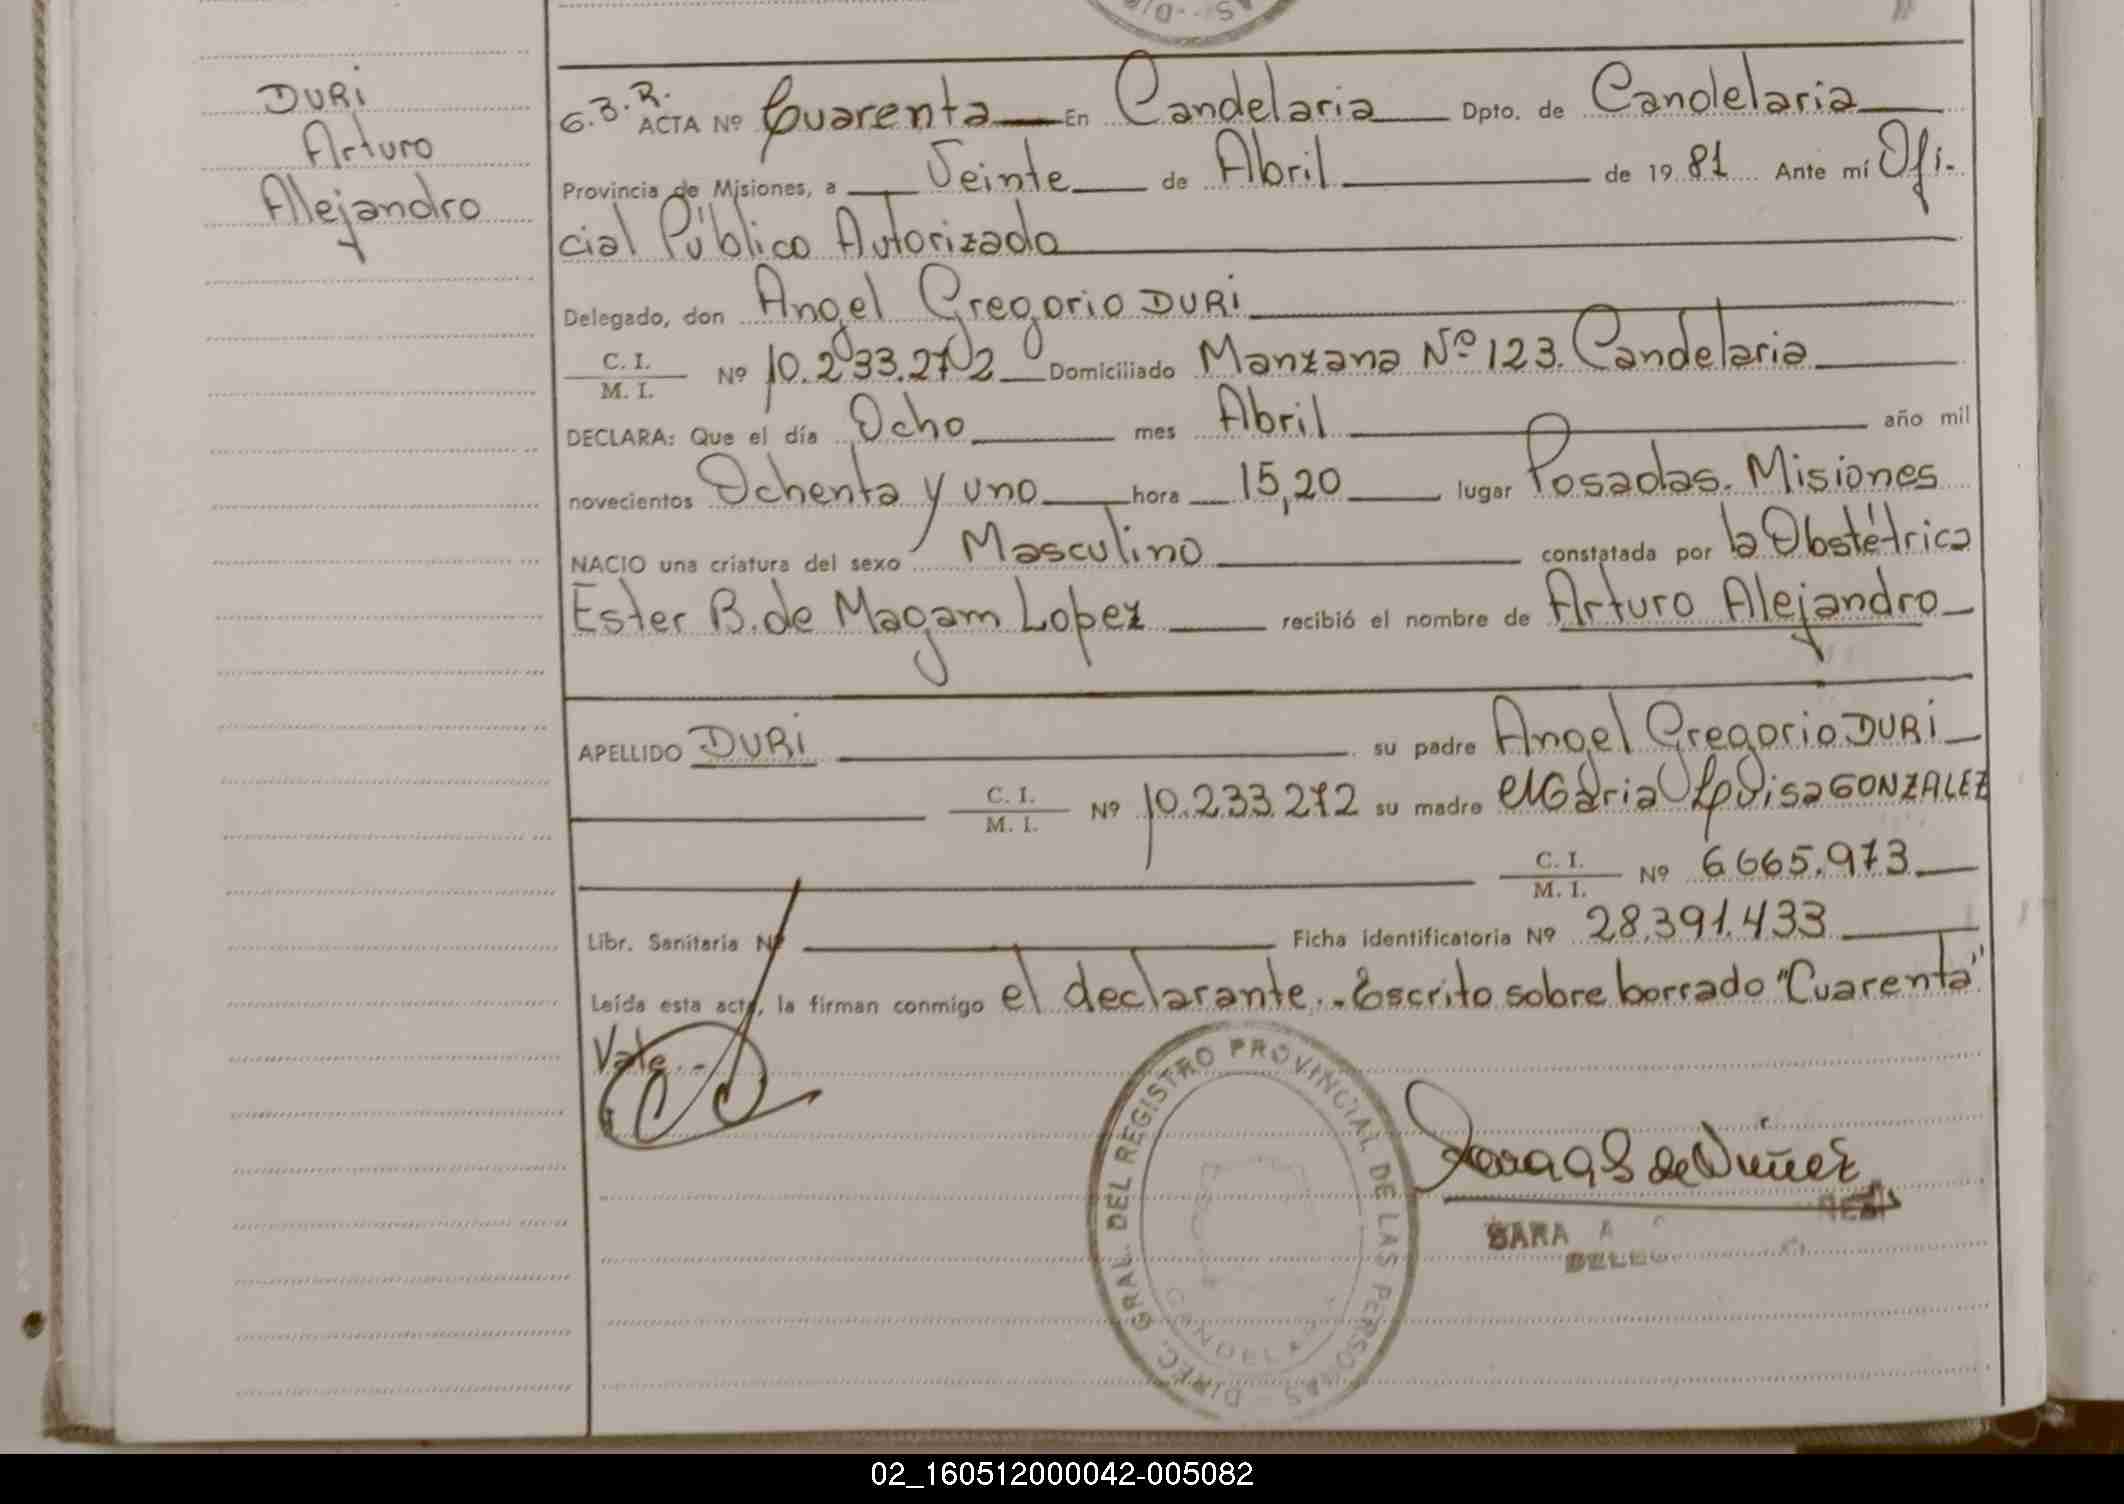 DURi
Arturo
Alejandro
ACTA Nº Cuarenta En Candelaria Dpto. de Candelaria
Provincia de Misiones, a Veinte de Abril de 19 81 Ante mí Ofi-
cial Público Autorizado
Delegado, don Angel Gregorio DURi
C. I.
M. I. Nº 10.233.272 Domiciliado Manzana Nº 123. Candelaria
DECLARA: Que el día Ocho mes Abril año mil
novecientos Ochenta y uno hora 15,20 lugar Posadas. Misiones
NACIO una criatura del sexo Masculino constatada por la Obstétrica
Ester B. de Magam Lopez recibió el nombre de Arturo Alejandro
APELLIDO DURi su padre Angel Gregorio DURi
C. I.
M. I. Nº 10.233.272 su madre María Luisa GONZALEZ
C. I.
M. I. Nº 6.665.973
Libr. Sanitaria Nº Ficha identificatoria Nº 28.391.433
Leída esta acta, la firman conmigo el declarante.-Escrito sobre borrado "Cuarenta"
Vale.-
DIREC. GRAL. DEL REGISTRO PROVINCIAL DE LAS PERSONAS
SARA A
02_160512000042-005082